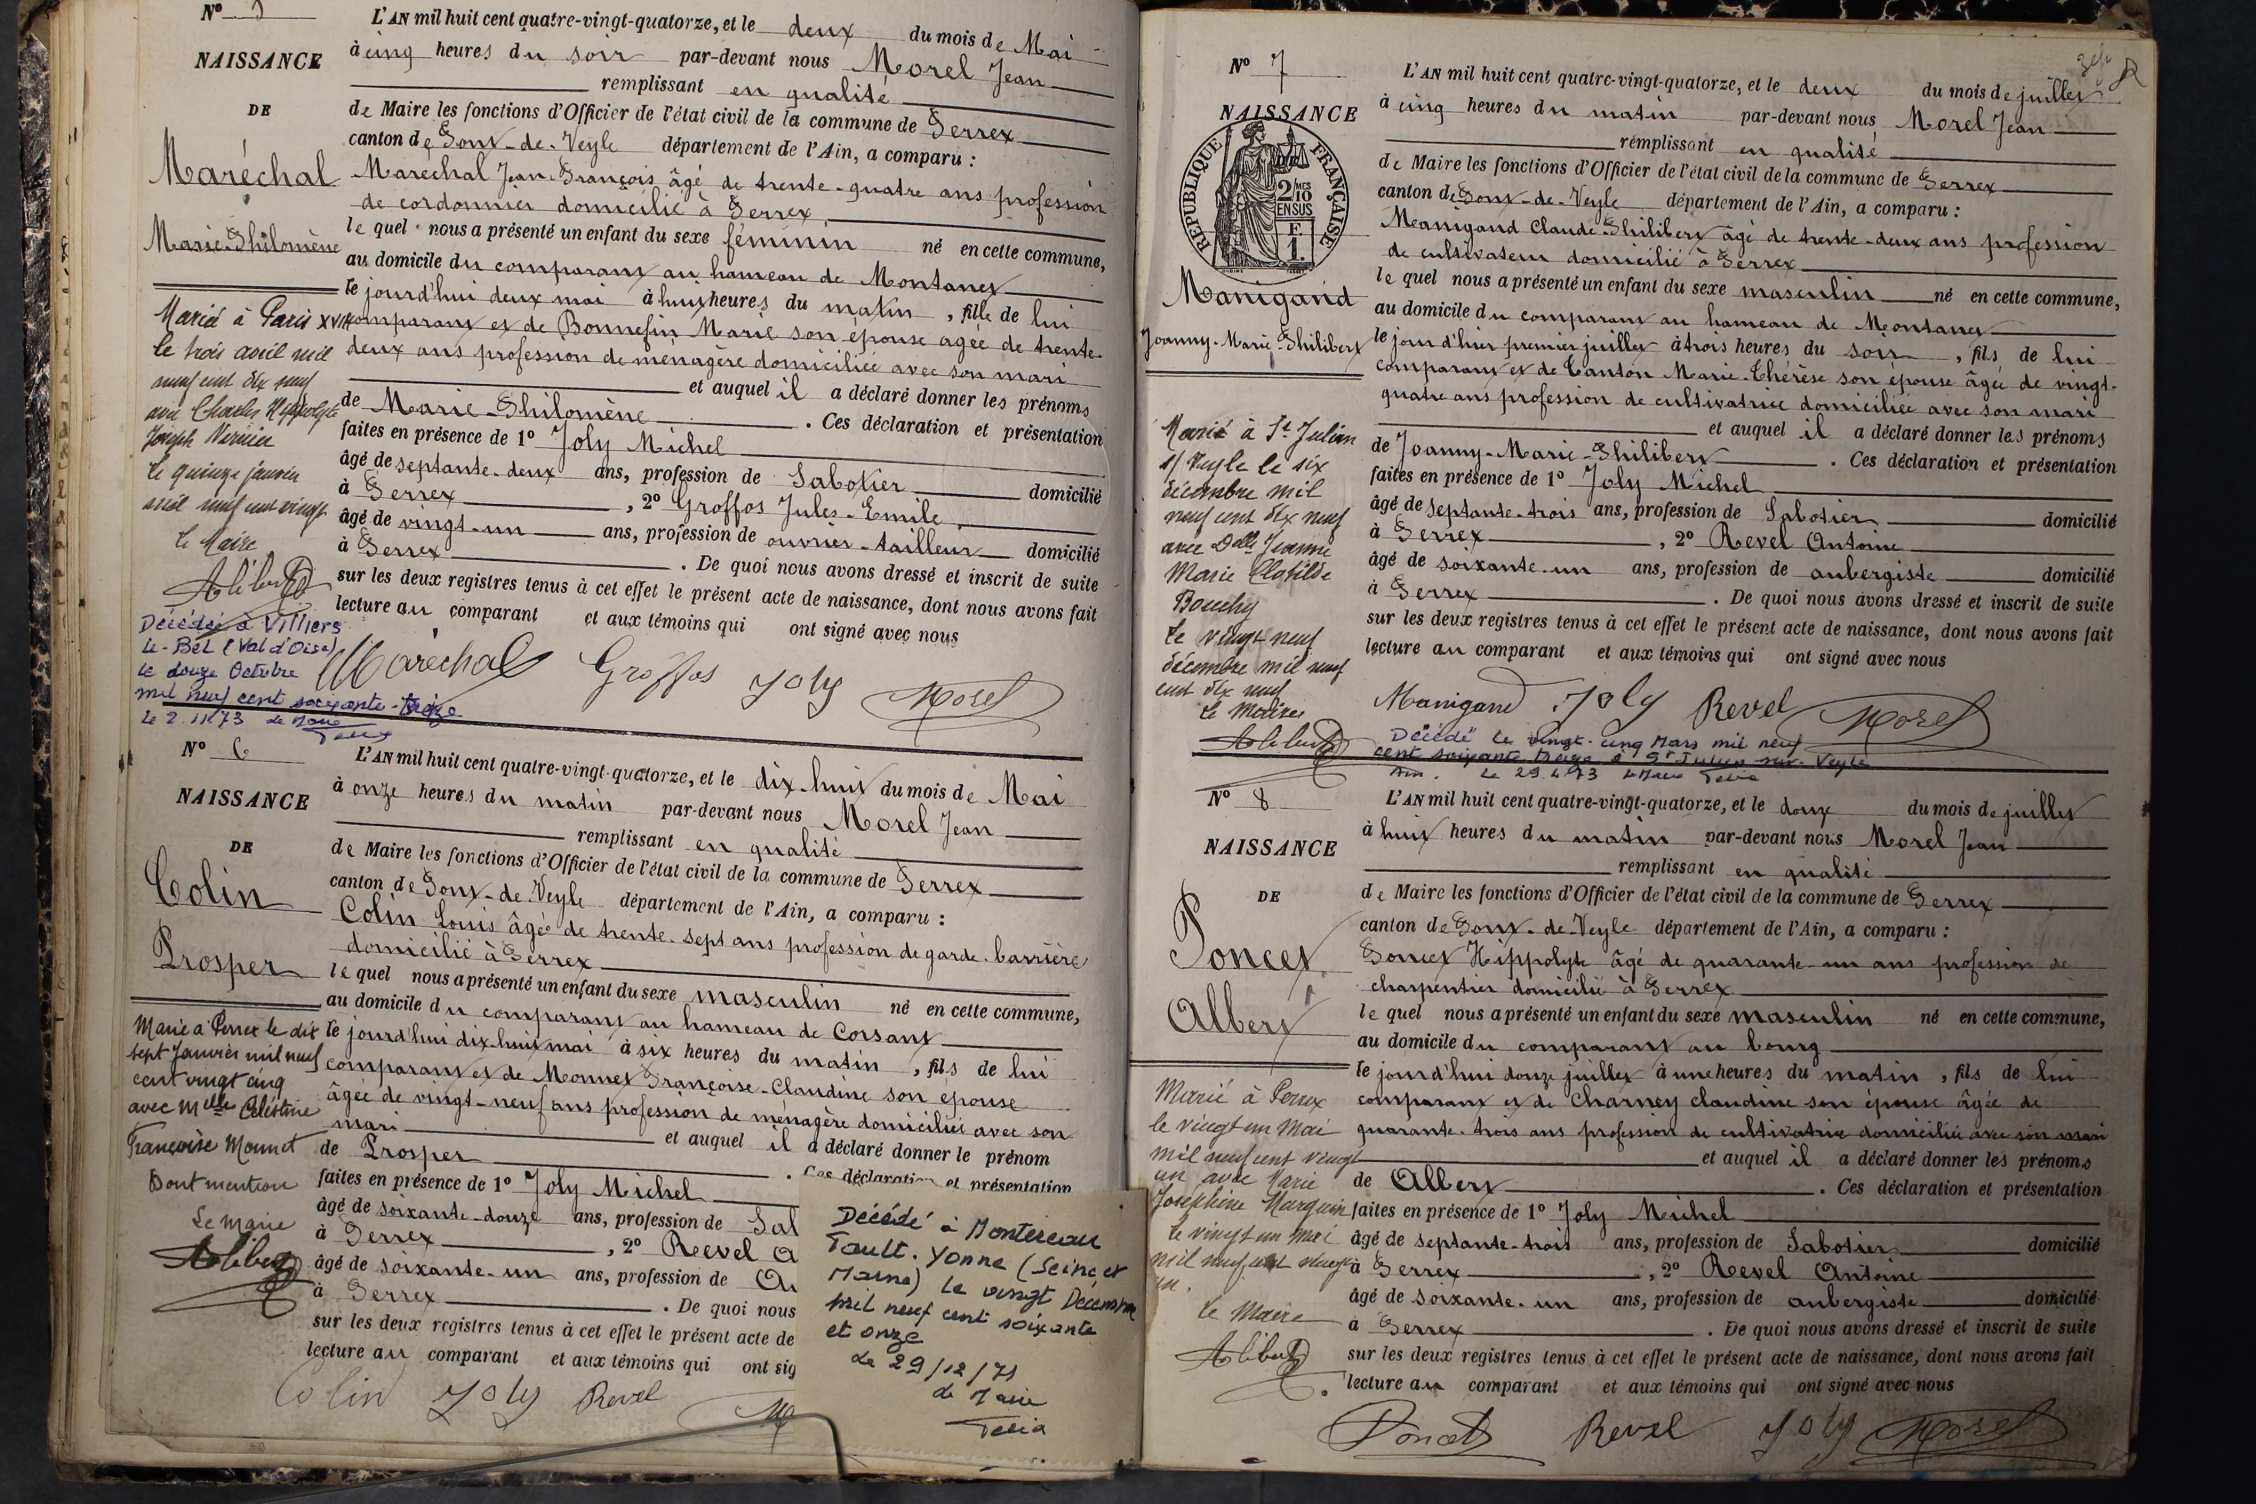 N° 5
NAISSANCE
DE
Maréchal
Marie-Philomène
Marié à Paris XVIII
le trois avril mil
neuf cent dix neuf
avec Charles Hippolyte
Joseph Vernier
le quinze janvier
mil neuf cent vingt
le Maire
Décédée à Villiers
Le-Bel (Val d'Oise)
le douze Octobre
mil neuf cent soixante-treize
Le 2.11.73 Le Maire
L'AN mil huit cent quatre-vingt-quatorze, et le deux du mois de Mai
à cinq heures du soir par-devant nous Morel Jean
remplissant en qualité
de Maire les fonctions d'Officier de l'état civil de la commune de Perrex
canton de Pont-de-Veyle département de l'Ain, a comparu :
Maréchal Jean-François âgé de trente-quatre ans profession
de cordonnier domicilié à Perrex
le quel nous a présenté un enfant du sexe féminin né en cette commune,
au domicile du comparant au hameau de Montanet
le jourd'hui deux mai à huit heures du matin, fille de lui
comparant et de Bonnefin Marie son épouse agée de trente-
deux ans profession de ménagère domiciliée avec son mari
et auquel il a déclaré donner les prénoms
de Marie-Philomène. Ces déclaration et présentation
faites en présence de 1° Joly Michel
âgé de septante-deux ans, profession de Sabotier domicilié
à Perrex, 2° Groffos Jules-Emile
âgé de vingt-un ans, profession de ouvrier-tailleur domicilié
à Perrex. De quoi nous avons dressé et inscrit de suite
sur les deux registres tenus à cet effet le présent acte de naissance, dont nous avons fait
lecture au comparant et aux témoins qui ont signé avec nous
Maréchal Groffos Joly Morel
N° 6
NAISSANCE
DE
Colin
Prosper
Marié à Perrex le dix
sept Janvier mil neuf
cent vingt cinq
avec Melle Célestine
Françoise Monnet
Dont mention
Le Maire
L'AN mil huit cent quatre-vingt-quatorze, et le dix-huit du mois de Mai
à onze heures du matin par-devant nous Morel Jean
remplissant en qualité
de Maire les fonctions d'Officier de l'état civil de la commune de Perrex
canton de Pont-de-Veyle département de l'Ain, a comparu :
Colin Louis âgé de trente-sept ans profession de garde-barrière
domicilié à Perrex
le quel nous a présenté un enfant du sexe masculin né en cette commune,
au domicile du comparant au hameau de Corsant
le jourd'hui dix-huit mai à six heures du matin, fils de lui
comparant et de Monnet Françoise-Claudine son épouse
âgée de vingt-neuf ans profession de ménagère domiciliée avec son
mari et auquel il a déclaré donner le prénom
de Prosper. Ces déclaration et présentation
faites en présence de 1° Joly Michel
âgé de soixante-douze ans, profession de Sal
à Perrex, 2° Reevel A
âgé de soixante-un ans, profession de Au
à Perrex. De quoi nous
sur les deux registres tenus à cet effet le présent acte de
lecture au comparant et aux témoins qui ont sig
Colin Joly Revel M
Décédé à Montereau
Fault. Yonne (Seine et
Marne) le vingt Décembre
mil neuf cent soixante
et onze
Le 29/12/71
Le Maire
N° 7
NAISSANCE
DE
RÉPUBLIQUE FRANÇAISE
2/10 MES
EN SUS
F.
1
Manigand
Joanny-Marie-Philibert
Marié à St Julien
s/ Veyle le six
décembre mil
neuf cent dix neuf
avec Delle Jeanne
Marie Clotilde
Bouchy
le vingt neuf
décembre mil neuf
cent dix neuf
Le Maire
L'AN mil huit cent quatre-vingt-quatorze, et le deux du mois de juillet
à cinq heures du matin par-devant nous Morel Jean
remplissant en qualité
de Maire les fonctions d'Officier de l'état civil de la commune de Perrex
canton de Pont-de-Veyle département de l'Ain, a comparu :
Manigand Claude-Philibert âgé de trente-deux ans profession
de cultivateur domicilié à Perrex
le quel nous a présenté un enfant du sexe masculin né en cette commune,
au domicile du comparant au hameau de Montanet
le jour d'hier premier juillet à trois heures du soir, fils de lui
comparant et de Canton Marie-Thérèse son épouse âgée de vingt-
quatre ans profession de cultivatrice domiciliée avec son mari
et auquel il a déclaré donner les prénoms
de Joanny-Marie-Philibert. Ces déclaration et présentation
faites en présence de 1° Joly Michel
âgé de septante-trois ans, profession de Sabotier domicilié
à Perrex, 2° Revel Antoine
âgé de soixante-un ans, profession de aubergiste domicilié
à Perrex. De quoi nous avons dressé et inscrit de suite
sur les deux registres tenus à cet effet le présent acte de naissance, dont nous avons fait
lecture au comparant et aux témoins qui ont signé avec nous
Manigand Joly Revel Morel
Décédé le vingt-cinq Mars mil neuf
cent soixante treize à St Julien sur-Veyle
Ain. Le 29.4.73 Le Maire
N° 8
NAISSANCE
DE
Poncet
Albert
Marié à Perrex
le vingt un Mai
mil neuf cent vingt
un avec Marie
Joséphine Marguin
le vingt un mai
mil neuf cent vingt
un.
Le Maire
L'AN mil huit cent quatre-vingt-quatorze, et le douze du mois de juillet
à huit heures du matin par-devant nous Morel Jean
remplissant en qualité
de Maire les fonctions d'Officier de l'état civil de la commune de Perrex
canton de Pont-de-Veyle département de l'Ain, a comparu :
Poncet Hippolyte âgé de quarante-un ans profession de
charpentier domicilié à Perrex
le quel nous a présenté un enfant du sexe masculin né en cette commune,
au domicile du comparant au bourg
le jourd'hui douze juillet à une heures du matin, fils de lui
comparant et de Charney claudine son épouse âgée de
quarante-trois ans profession de cultivatrice domiciliée avec son mari
et auquel il a déclaré donner les prénoms
de Albert. Ces déclaration et présentation
faites en présence de 1° Joly Michel
âgé de septante-trois ans, profession de Sabotier domicilié
à Perrex, 2° Revel Antoine
âgé de soixante-un ans, profession de aubergiste domicilié
à Perrex. De quoi nous avons dressé et inscrit de suite
sur les deux registres tenus à cet effet le présent acte de naissance, dont nous avons fait
lecture au comparant et aux témoins qui ont signé avec nous
Poncet Revel Joly Morel